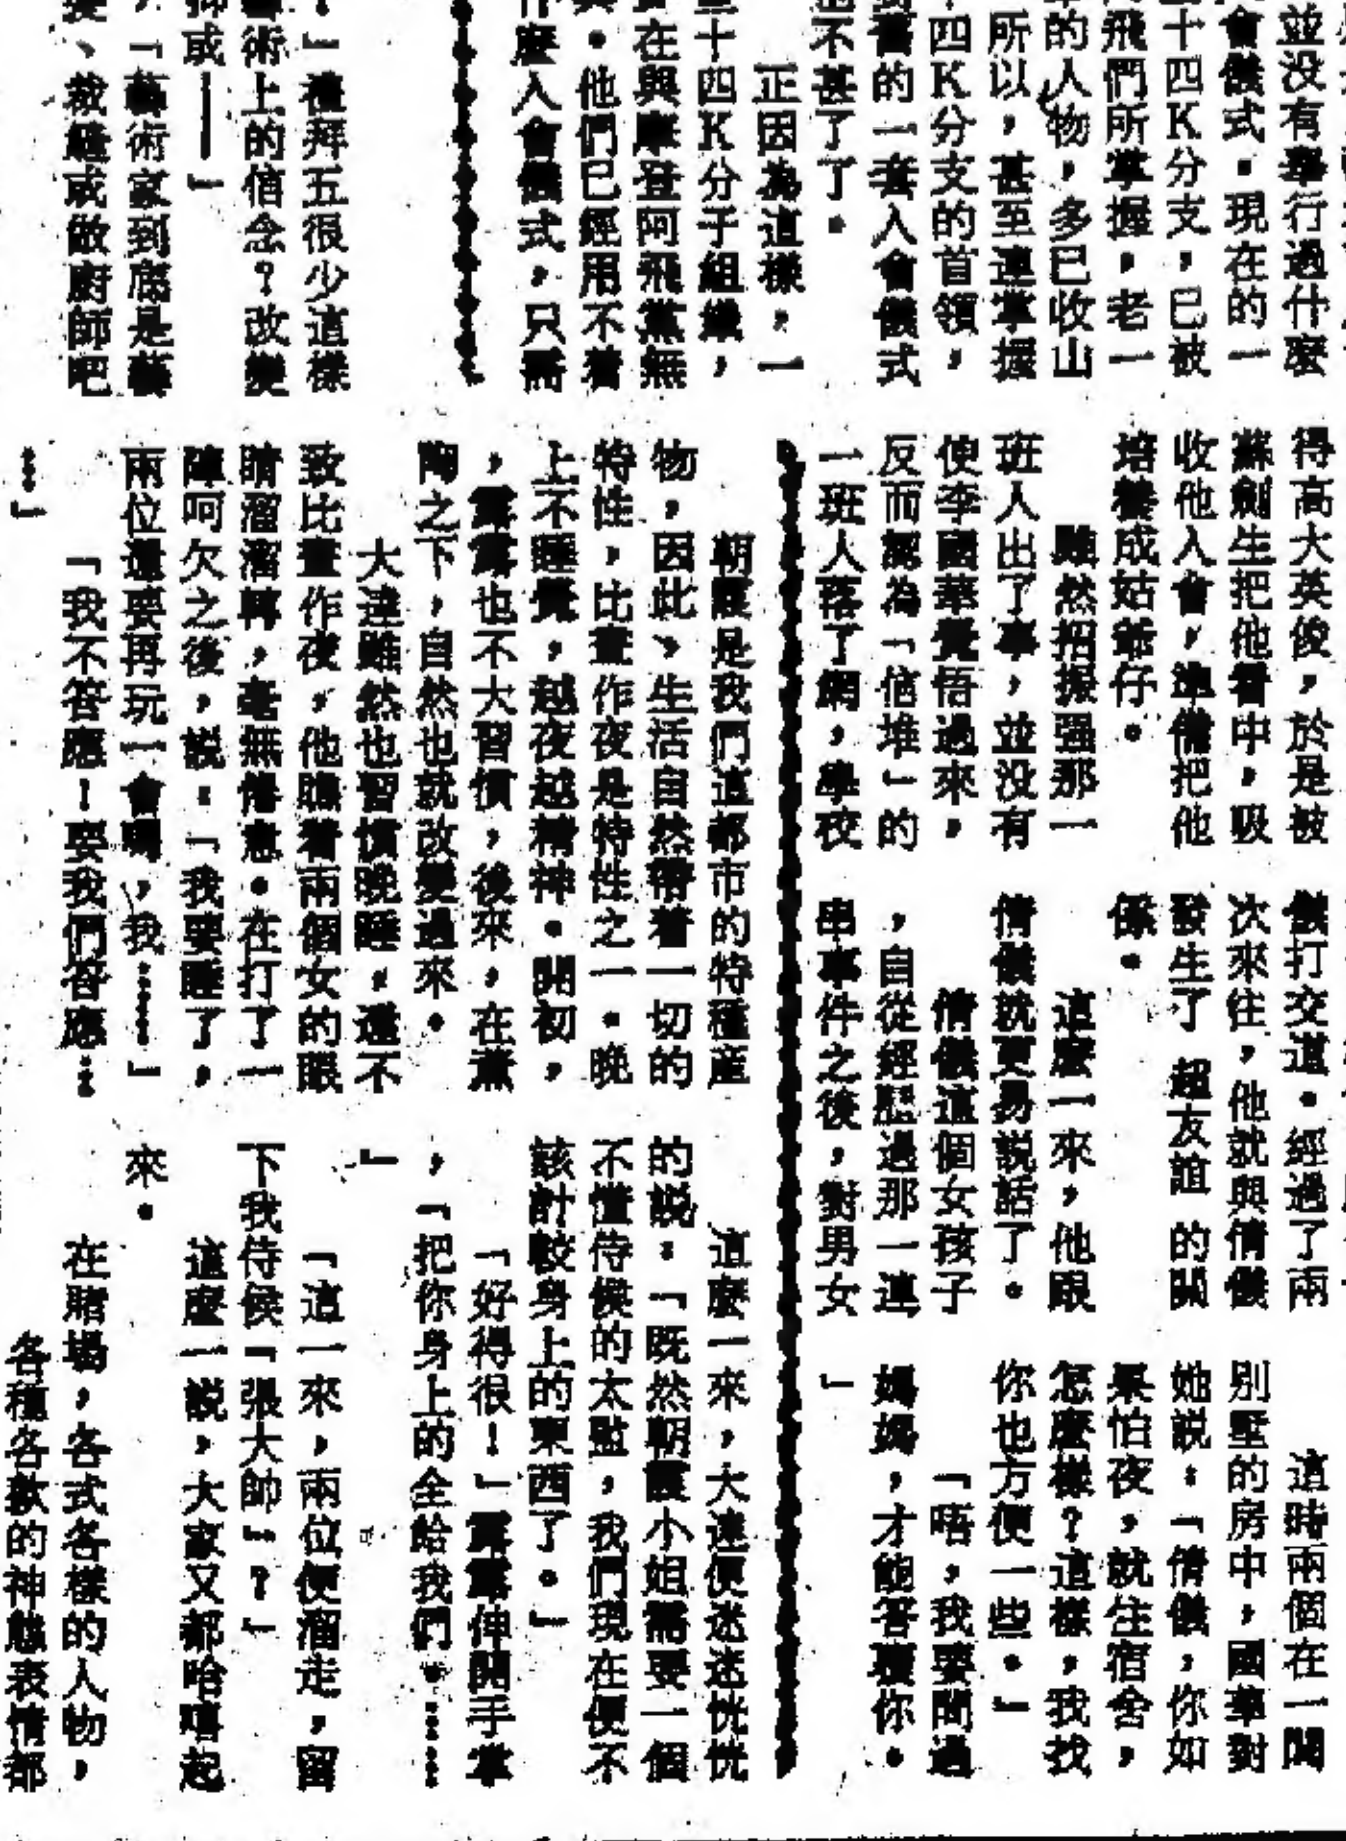 並没有舉行過什麼
會儀式。現在的一
十四K分支，已被
飛們所掌握，老一
的人物，多已收山
所以，甚至連掌握
四K分支的首領，
舊的一套入會儀式
也不甚了了。
正因為這樣，一
十四K分子組織，
在與摩登阿飛黨無
。他們已經用不着
什麼入會儀式，只需
得高大英俊，於是被
蘇劍生把他看中，吸
收他入會，準備把他
培養成姑爺仔。
雖然招振强那一
班人出了事，並没有
使李國華覺悟過來，
反而認為「信堆」的
一班人落了網，學校
儀打交道。經過了兩
次來往，他就與倩儀
發生了 超友誼 的關
係。
這麼一來，他跟
倩儀就更易説話了。
倩儀這個女孩子
，自從經歷過那一連
串事件之後，對男女
這時兩個在一間
別墅的房中，國華對
她説：「倩儀，你如
果怕夜，就住宿舍，
怎麼樣？這樣，我找
你也方便一些。」
「唔，我要問過
媽媽，才能答覆你。
」
。」禮拜五很少這樣
術上的信念？改變
抑或——」
，「藝術家到底是藝
、裁縫或做廚師吧
朝霞是我們這都市的特種産
物，因此，生活自然帶着一切的
特性，比晝作夜是特性之一。晚
上不睡覺，越夜越精神。開初，
，露露也不大習慣，後來，在薰
陶之下，自然也就改變過來。
大達雖然也習慣晚睡，還不
致比晝作夜，他瞧着兩個女的眼
睛溜溜轉，毫無倦意。在打了一
陣呵欠之後，説：「我要睡了，
兩位還要再玩一會嗎，我……」
「我不答應！要我們答應…
…」
這麼一來，大達便迷迷恍恍
的説：「既然朝霞小姐需要一個
不懂侍候的太監，我們現在便不
該計較身上的東西了。」
「好得很！」露露伸開手掌
，「把你身上的全給我們。……
」
「這一來，兩位便溜走，留
下我侍候「張大帥」？」
這麼一説，大家又都哈嘻起
來。
在賭場，各式各樣的人物，
各種各款的神態表情都